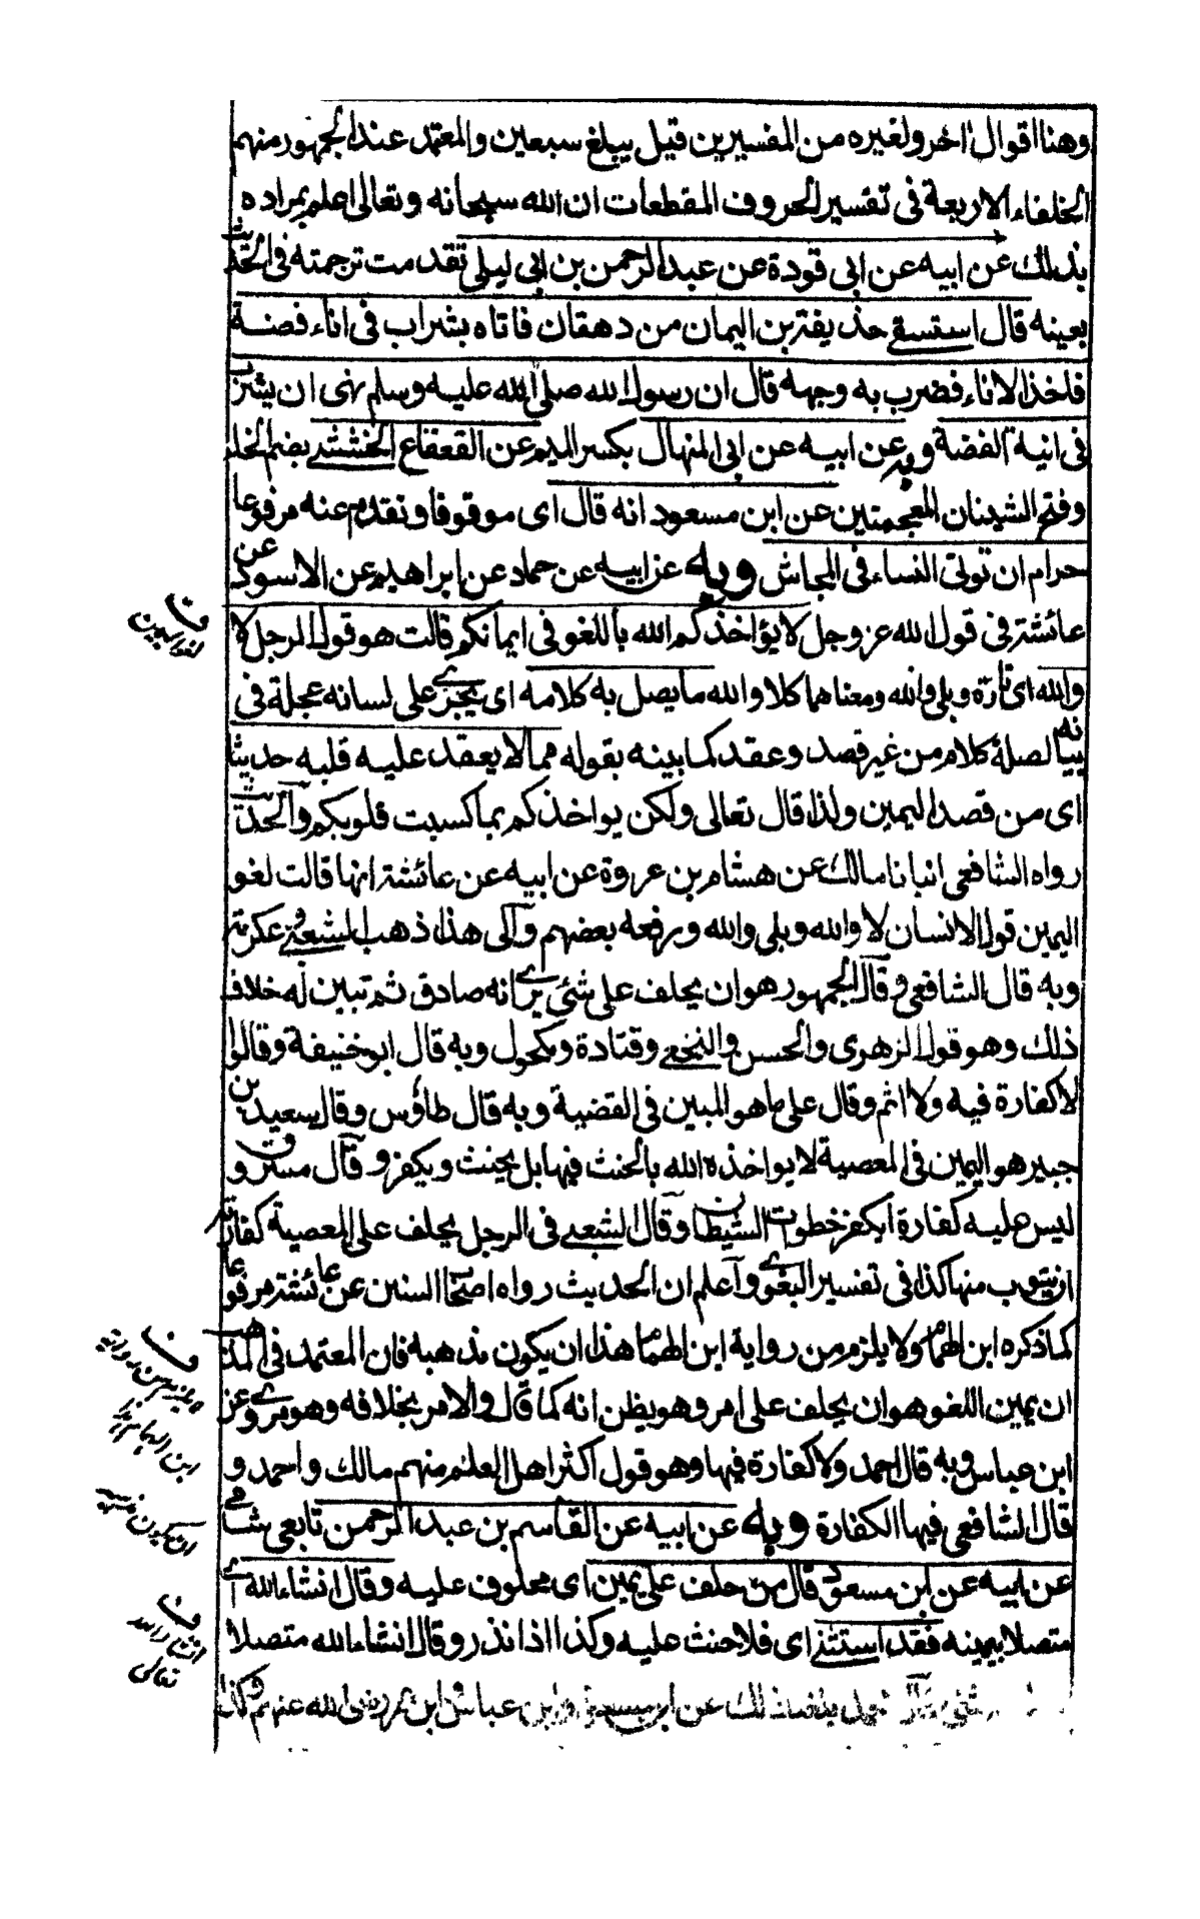 وهنا اقوال اخر ولغيره من المفسيرين قيل يبلغ سبعين والمعتمد عند الجمهور منهم
الخلفاء الاربعة فى تفسير الحروف المقطعات ان الله سبحانه وتعالى اعلم بمراده
بذلك عن ابيه عن ابى قودة عن عبد الرحمن بن ابى ليلى تقدمت ترجمته فى الحديث
بعينه قال استسقى حذيفة بن اليمان من دهقان فاتاه بشراب فى اناء فضة
فاخذ الاناء فضرب به وجهه قال ان رسول الله صلى الله عليه وسلم نهى ان يشرب
فى انية الفضة وبه عن ابيه عن ابى المنهال بكسر الميم عن القعقاع الخششى بضم الخاء
وفتح الشينان المعجمتين عن ابن مسعود انه قال اى موقوفا وتقدم عنه مرفوعا
حرام ان توتى النساء فى المجاش وبه عن ابيه عن حماد عن ابراهيم عن الاسود عن
عائشة فى قول الله عز وجل لا يؤاخذكم الله باللغو فى ايمانكم قالت هو قول الرجل لا
والله اى تارة وبلى والله ومعناهما كلا والله ما يصل به كلامه اى يجرى على لسانه عجلة فى
بيانه لصلة كلام من غير قصد وعقد كما بينه بقوله مما لا يعقد عليه قلبه حديثا
اى من قصد اليمين ولذا قال تعالى ولكن يواخذكم بما كسبت قلوبكم والحديث
رواه الشافعى انبانا مالك عن هشام بن عروة عن ابيه عن عائشة انها قالت لغو
اليمين قول الانسان لا والله وبلى والله ورفعه بعضهم والى هذا ذهب الشعبى وعكرمة
وبه قال الشافعى وقال الجمهور هو ان يحلف على شئ يرى انه صادق ثم تبين له خلاف
ذلك وهو قول الزهرى والحسن والنخعى وقتادة ومكحول وبه قال ابو خنيفة وقالوا
لا كفارة فيه ولا اثم وقال على ما هو المبين فى القضية وبه قال طاؤس وقال سعيد بن
جبير هو اليمين فى المعصية لا يواخذه الله بالحنث فيها بل يحنث ويكفر وقال مسروق
ليس عليه كفارة ايكفر خطوات الشيطان وقال الشعبى فى الرجل يحلف على المعصية كفارته
ان يتوب منها كذا فى تفسير البغوى واعلم ان الحديث رواه اصحاب السنن عن عائشة مرفوعا
كما ذكره ابن الهمام ولا يلزم من رواية ابن الهمام هذا ان يكون مذهبه فان المعتمد فى المذهب
ان يمين اللغو هو ان يحلف على امر وهو يظن انه كما قال والامر بخلافه وهو مروى عن
ابن عباس وبه قال احمد ولا كفارة فيها وهو قول اكثر اهل العلم منهم مالك واحمد و
قال الشافعى فيها الكفارة وبه عن ابيه عن القاسم بن عبد الرحمن تابعى شامى
عن ابيه عن ابن مسعود قال من حلف على يمين اى محلوف عليه وقال انشاء الله اى
متصلا بيمينه فقد استثنى اى فلا حنث عليه وكذا اذا نذر وقال انشاء الله متصلا
ذلك عن ابن مسعود وابن عباس وابن عمر رضى الله عنهم وكذا
ف
لغو يمين
ف
ابن الهمام
ف
انشاء الله
تعالى